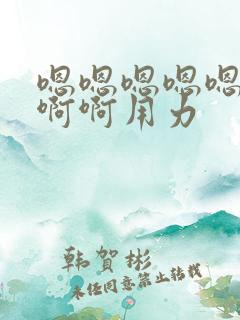 嗯嗯嗯嗯嗯
啊啊用力
韩贺彬
未经同意禁止转载